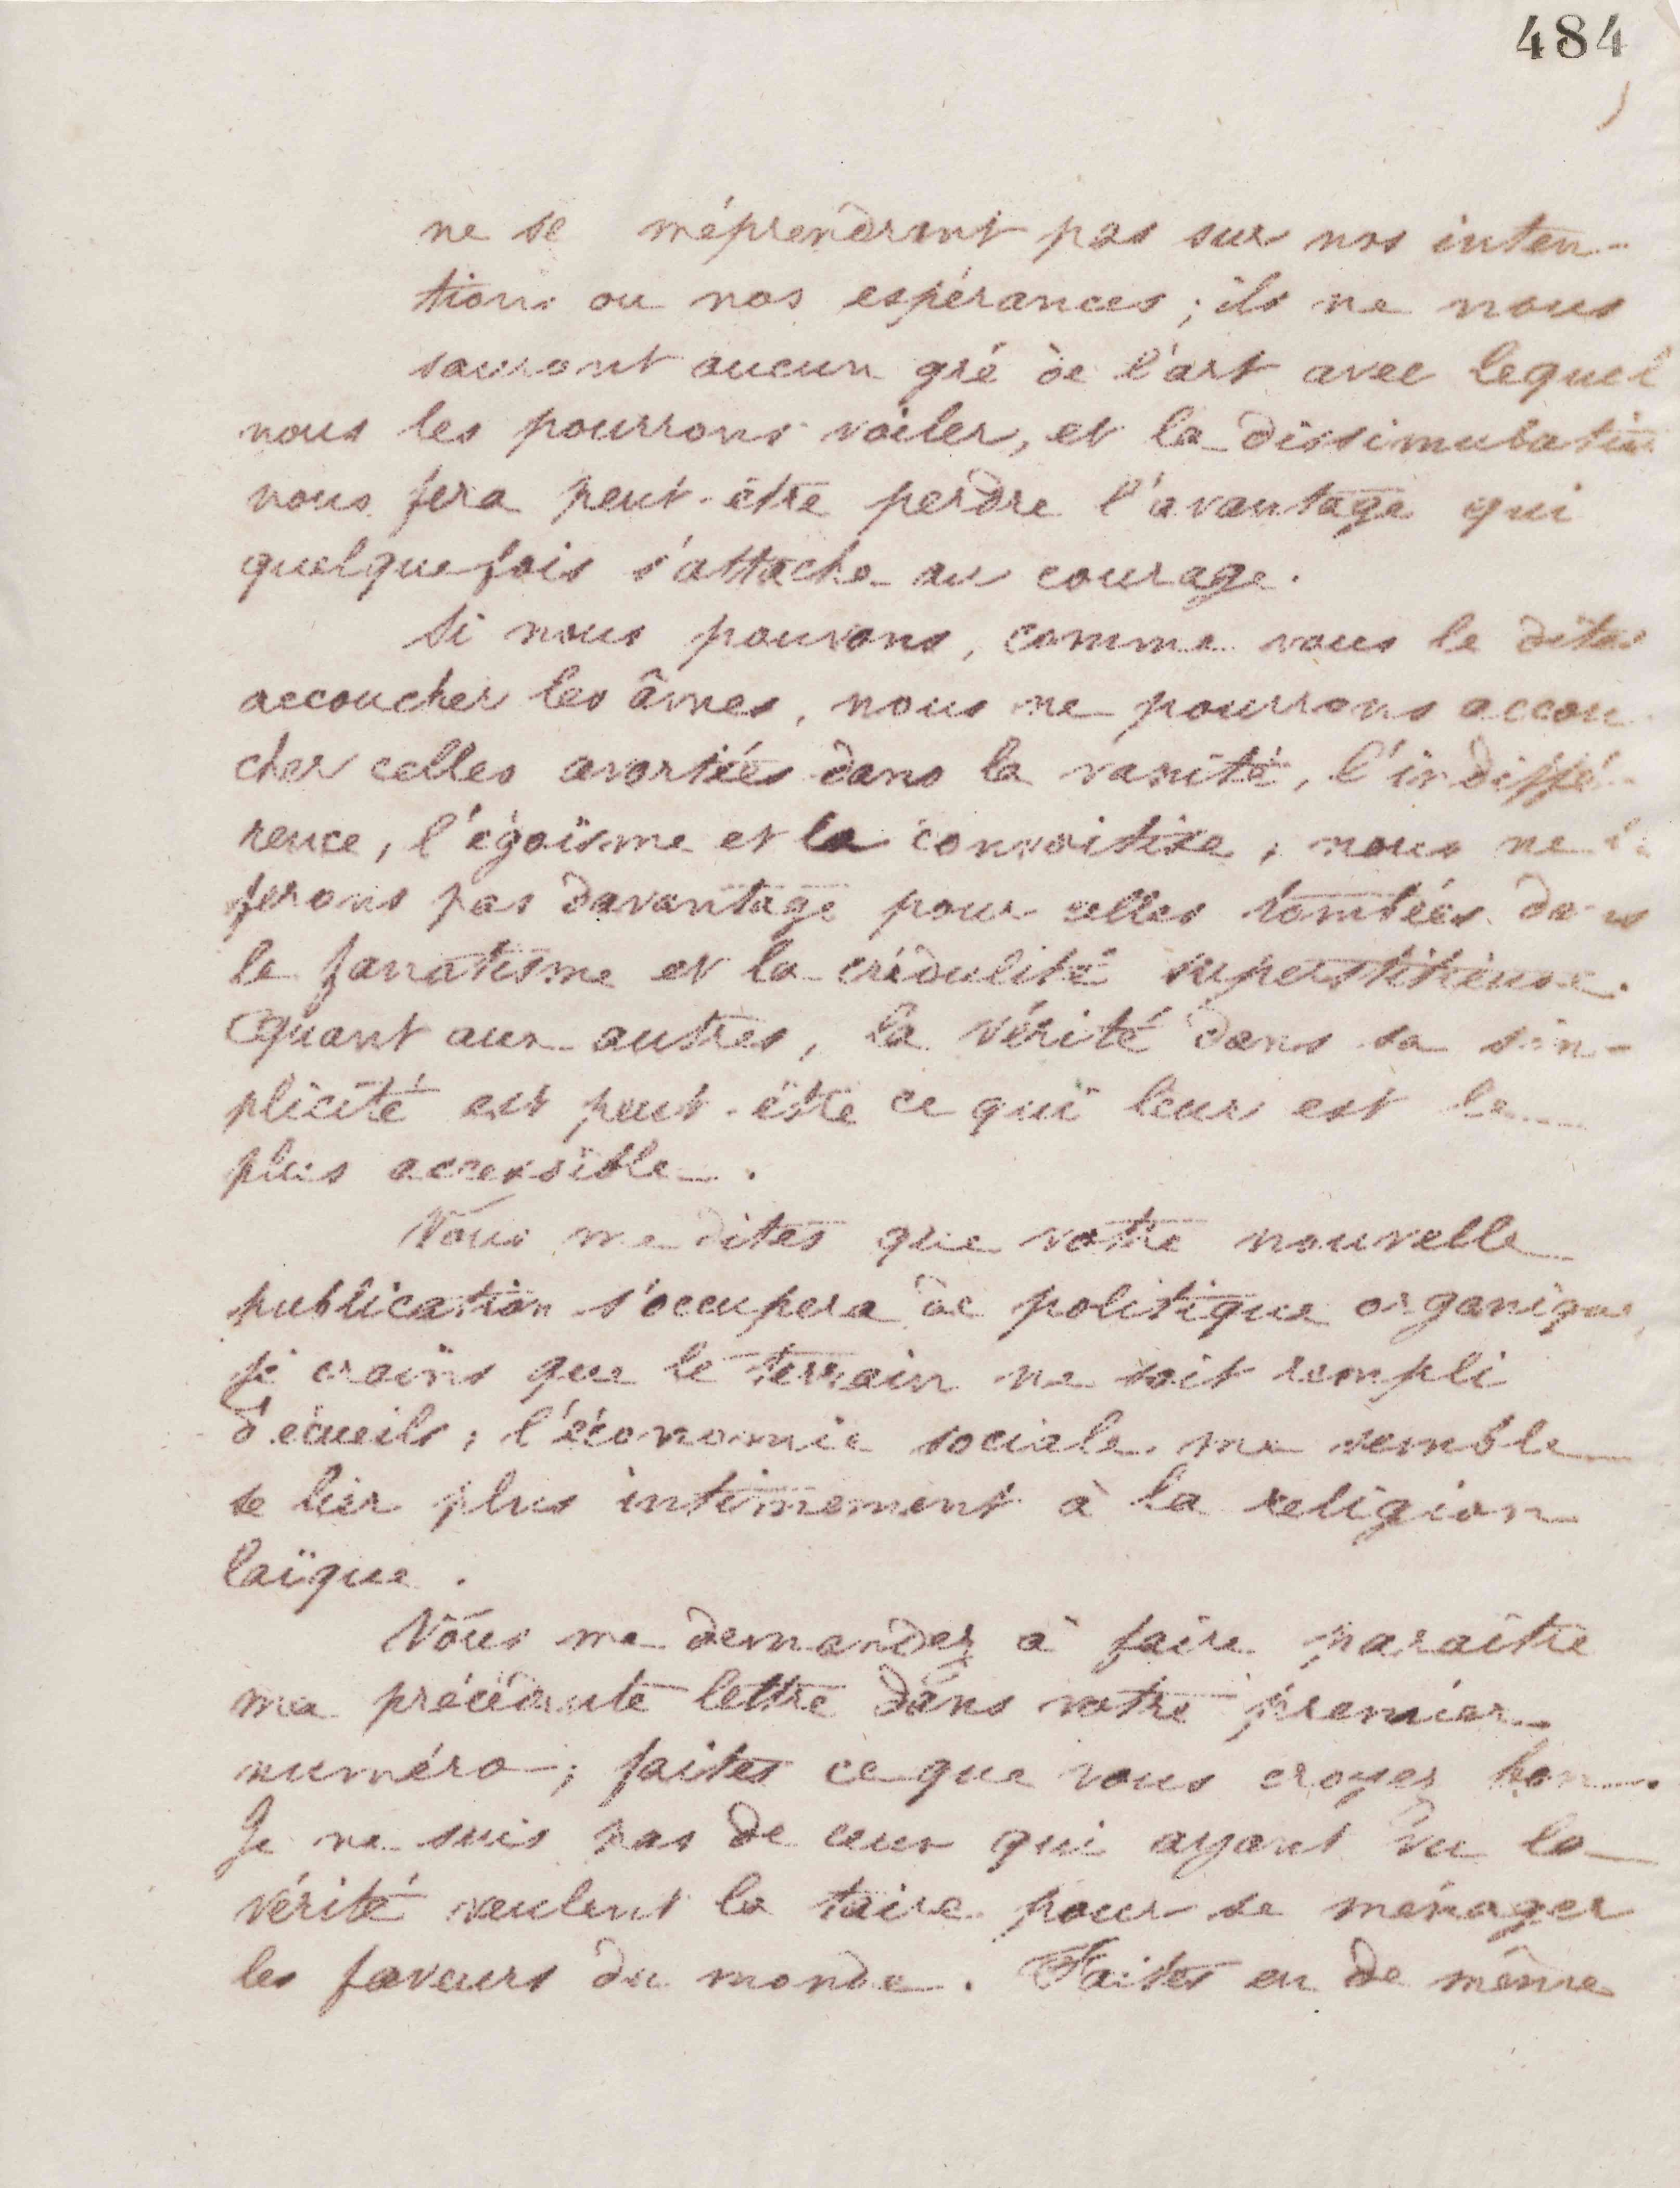 484
ne se méprendront pas sur nos inten-
tions ou nos espérances ; ils ne nous
sauront aucun gré de l'art avec lequel
nous les pourrons voiler, et la dissimulation
nous fera peut-être perdre l'avantage qui
quelquefois s'attache au courage.
Si nous pouvons, comme vous le dites
accoucher les âmes, nous ne pourrons accou
cher celles avortées dans la vanité, l'indiffé-
rence, l'égoïsme et la convoitise ; nous ne le
ferons pas davantage pour celles tombées dans
le fanatisme et la crédulité superstitieuse.
Quant aux autres, la vérité dans sa sim-
plicité est peut-être ce qui leur est le
plus accessible.
Vous me dites que votre nouvelle
publication s'occupera de politique organique,
je crains que le terrain ne soit rempli
d'écueils ; l'économie sociale me semble
se lier plus intimement à la religion
laïque.
Vous me demandez à faire paraître
ma précédente lettre dans votre premier
numéro ; faites ce que vous croyez bon.
Je ne suis pas de ceux qui ayant vu la
vérité veulent la taire pour se ménager
les faveurs du monde. Faites en de même